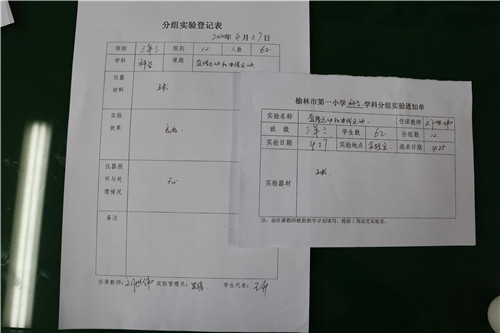 分组实验登记表
班级 三年三 组别 12 人数 62
学科 科学 课题 直线运动和曲线运动
仪器
材料
实验
效果 良好
仪器损
坏与处
理情况 无
备注
任课教师: 实验管理员: 学生代表:
榆林市第一小学 科学 学科分组实验通知单
实验名称 直线运动和曲线运动 任课教师
班 级 三年三 学生数 62 分组数 12
实验日期 4.27 实验地点 实验室 通知日期 4.25
实验器材
注: 由任课教师根据教学计划填写, 提前1周送交实验室。